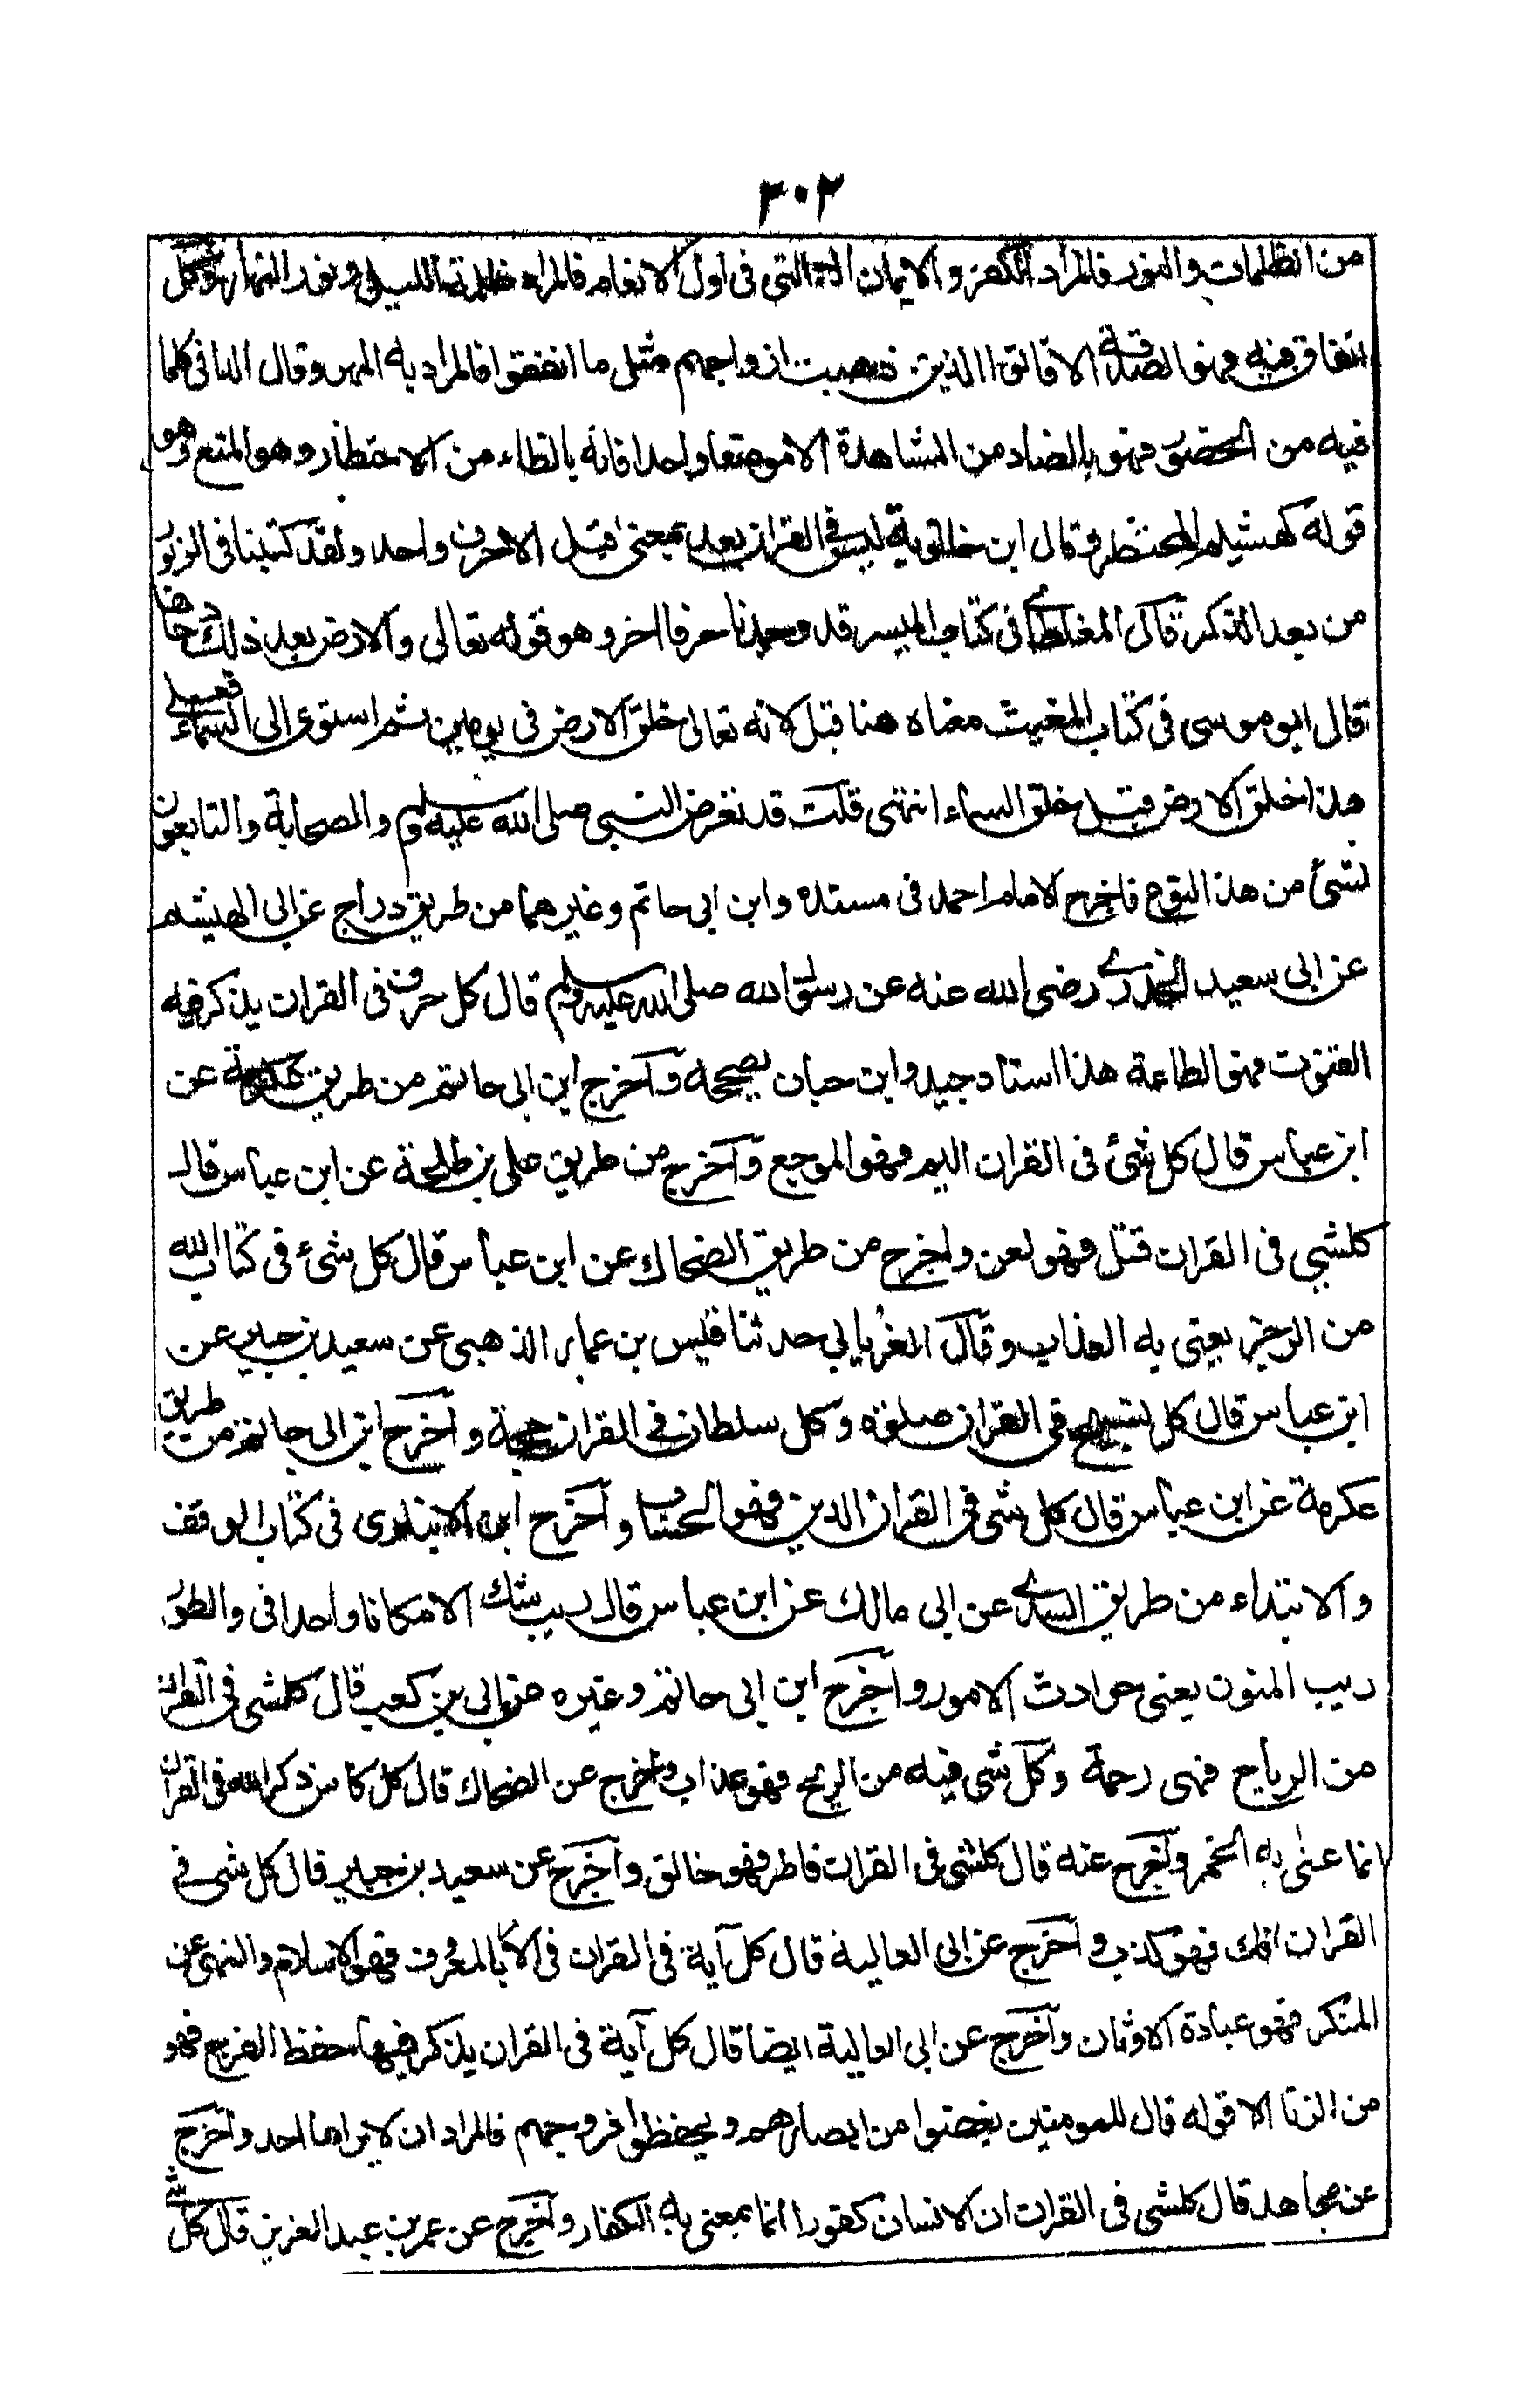 ٣٠٢
من الظلمات والنور فالمراد الكفر والايمان الا التى فى اول الانعام فالمراد ظلمة الليل ونور النهار وكل
انفاق فيه فهو الصدقة الا فاتوا الذين ذهبت ازواجهم مثل ما انفقوا فالمراد به المهر وقال الدانى كلما
فيه من الحضور فهو بالضاد من المشاهدة الا موضعا واحدا فانه بالظاء من الاحتظار وهو المنع وهو
قوله كهشيم المحتظر وقال ابن خالويه ليس فى القران بعد بمعنى قبل الا حرف واحد ولقد كتبنا فى الزبور
من بعد الذكر قال المغلطاى فى كتاب الميسر قد وجدنا حرفا اخر وهو قوله تعالى والارض بعد ذلك دحاها
قال ابو موسى فى كتاب المغيث معناه هنا قبل لانه تعالى خلق الارض فى يومين ثم استوى الى السماء فعلى
هذا خلق الارض قبل خلق السماء انتهى قلت قد تعرض النبى صلى الله عليه وسلم والصحابة والتابعون
لشئ من هذا النوع فاخرج الامام احمد فى مسنده وابن ابى حاتم وغيرهما من طريق دراج عن ابى الهيثم
عن ابى سعيد الخدرى رضى الله عنه عن رسول الله صلى الله عليه وسلم قال كل حرف فى القران يذكر فيه
القنوت فهو الطاعة هذا اسناد جيد وابن حبان يصححه واخرج ابن ابى حاتم من طريق عكرمة عن
ابن عباس قال كل شئ فى القران اليم فهو الموجع واخرج من طريق على بن طلحة عن ابن عباس قال
كلشى فى القران قتل فهو لعن واخرج من طريق الضحاك عن ابن عباس قال كل شئ فى كتاب الله
من الرجز يعنى به العذاب وقال الفريابى حدثنا قيس بن عمار الذهبى عن سعيد بن جبير عن
ابن عباس قال كل تسبيح فى القران صلوة وكل سلطان فى القران حجة واخرج ابن ابى حاتم من طريق
عكرمة عن ابن عباس قال كل شى فى القران الدين فهو الحساب واخرج ابن الانبارى فى كتاب الوقف
والابتداء من طريق السدى عن ابى مالك عن ابن عباس قال ريب شك الا مكانا واحدا فى والطور
ريب المنون يعنى حوادث الامور واخرج ابن ابى حاتم وغيره عن ابى بن كعب قال كلشى فى القران
من الرياح فهى رحمة وكل شى فيه من الريح فهو عذاب واخرج عن الضحاك قال كل كاس ذكر الله فى القران
انما عنى به الخمر واخرج عنه قال كلشى فى القران فاطر فهو خالق واخرج عن سعيد بن جبير قال كل شى فى
القران افك فهو كذب واخرج عن ابى العالية قال كل آية فى القران فى الا بالمعروف فهو الاسلام والنهى عن
المنكر فهو عبادة الاوثان واخرج عن ابى العالية ايضا قال كل آية فى القران يذكر فيها حفظ الفرج فهو
من الزنا الا قوله قال للمومنين يغضوا من ابصارهم ويحفظوا فروجهم فالمراد ان لا يراها احد واخرج
عن مجاهد قال كلشى فى القران ان الانسان كفورا انما يعنى به الكفار واخرج عن عمر بن عبد العزيز قال كل شئ